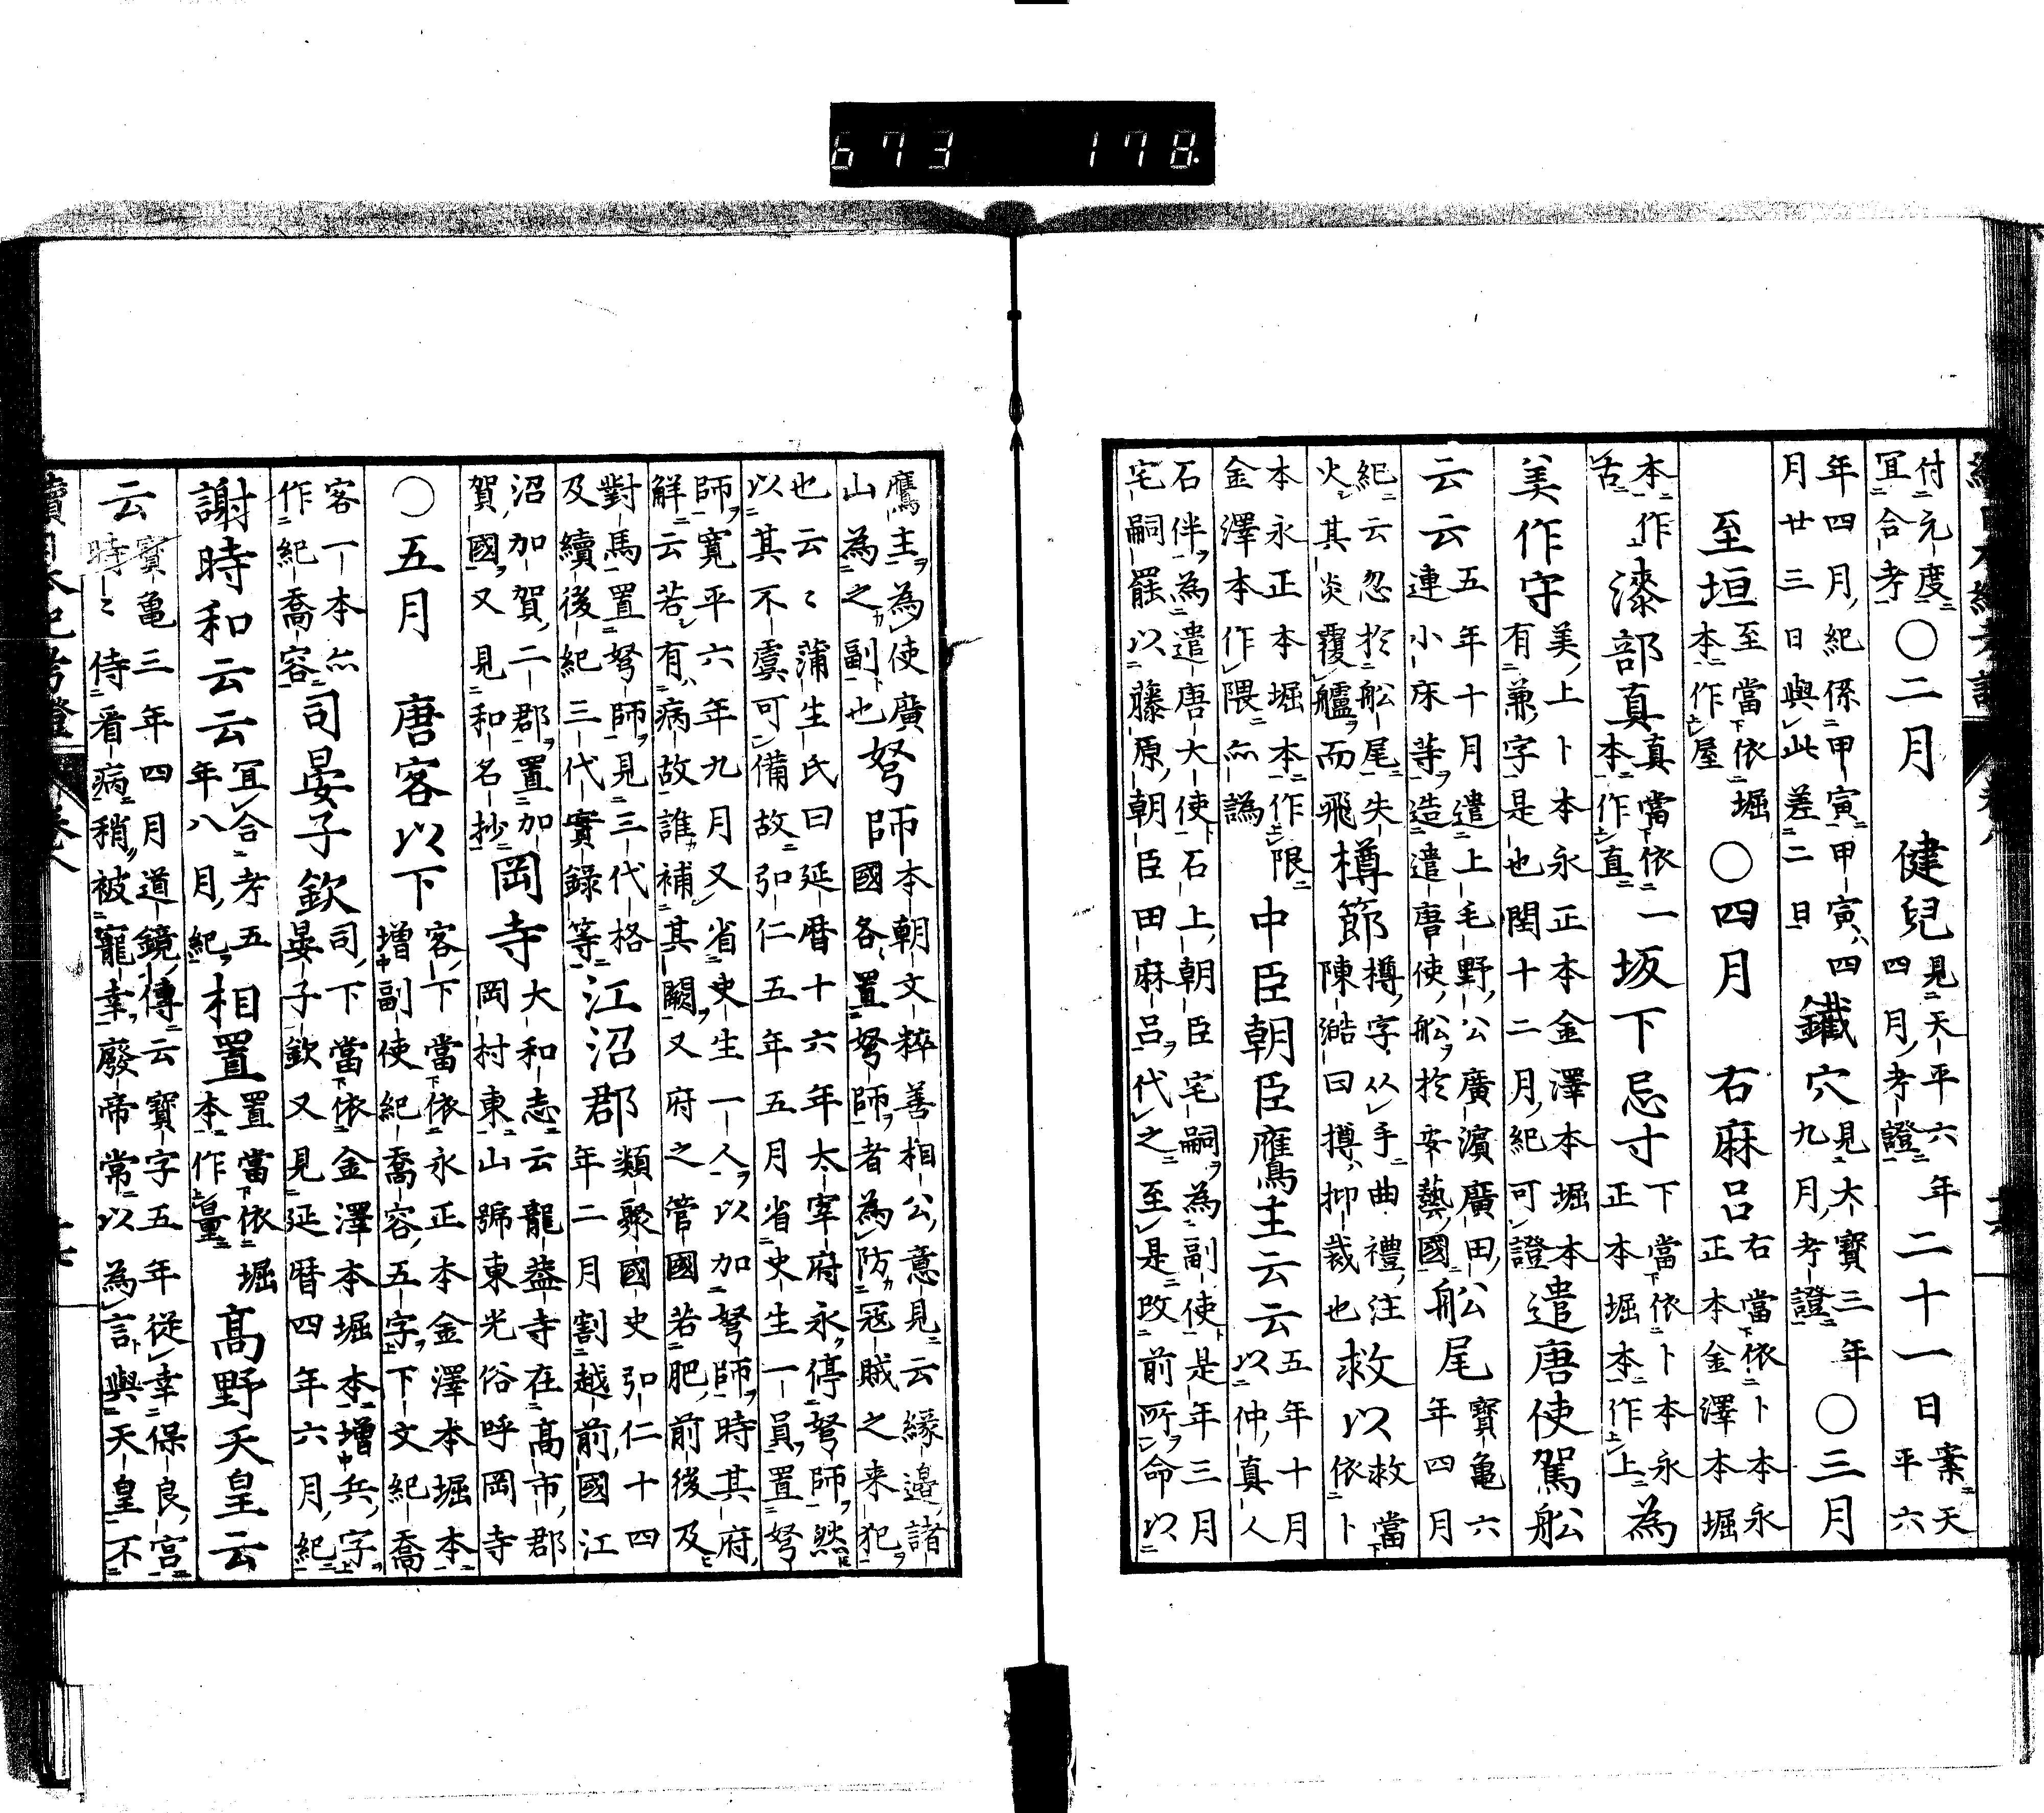 673 178.
付元度
冝合考
○二月 健兒
見天平六年
四月考證
二十一日
案天
平六
年四月紀係甲寅甲寅四
月廿三日與此差二日
鐵穴
見大寳三年
九月考證
○三月
至垣
至當依堀
本作屋
○四月 右麻呂
右當依卜本永
正本金澤本堀
本作
舌
漆部真
真當依
本作直
一坂下忌寸
下當依卜本永
正本堀本作上
為
美作守
美上卜本永正本金澤本堀本
有兼字是也閏十二月紀可證
遣唐使駕舩
云云
五年十月遣上毛野公廣濵廣田
連小床等造遣唐使舩於安藝國
舩尾
寳龜六
年四月
紀云忽於舩尾失
火其炎覆艫而飛
樽節
樽字从手曲禮注
陳澔曰撙抑裁也
救以
救當
依卜
本永正本堀本作限
金澤本作隈亦譌
中臣朝臣鷹主云云
五年十月
以仲真人
石伴為遣唐大使石上朝臣宅嗣為副使是年三月
宅嗣罷以藤原朝臣田麻呂代之至是改前所命以
鷹主為使廣
山為之副也
弩師
本朝文粹善相公意見云縁邉諸
國各置弩師者為防冦賊之来犯
也云〻蒲生氏曰延暦十六年太宰府永停弩師然
以其不虞可備故弘仁五年五月省史生一員置弩
師寛平六年九月又省史生一人以加弩師時其府
解云若有病故誰補其闕又府之管國若肥前後及
對馬置弩師見三代格
及續後紀三代實録等
江沼郡
類聚國史弘仁十四
年二月割越前國江
沼加賀二郡置加
賀國又見和名抄
岡寺
大和志云龍葢寺在髙市郡
岡村東山號東光俗呼岡寺
○五月 唐客以下
客下當依永正本金澤本堀本
増副使紀喬容五字下文紀喬
客一本亦
作紀喬容
司晏子欽
司下當依金澤本堀本増兵字
晏子欽又見延暦四年六月紀
謝時和云云
冝合考五
年八月紀
相置
置當依堀
本作量
髙野天皇云
云
寳龜三年四月道鏡傳云寳字五年從幸保良宮
時〻侍看病稍被寵幸廢帝常以為言與天皇不
續日本紀考證 卷八